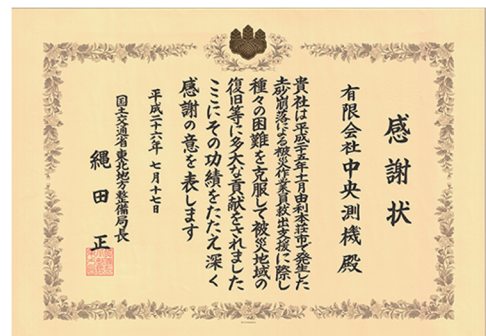 感謝状
有限会社中央測機殿
貴社は平成二十五年十一月由利本荘市で発生した
土砂崩落による被災作業員救出支援に際し
種々の困難を克服して被災地域の
復旧等に多大な貢献をされました
ここにその功績をたたえ深く
感謝の意を表します
平成二十六年 七月十七日
国土交通省東北地方整備局長
縄田 正